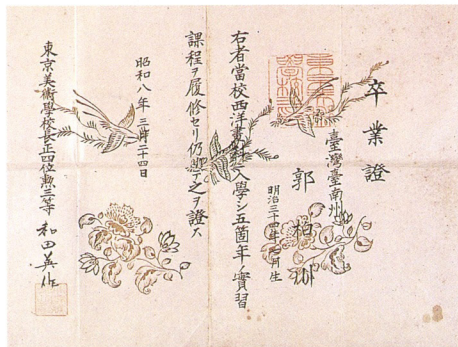 卒業證
臺灣臺南州
郭柏川
明治三十四年 月生
右者當校西洋畫科ニ入學シ五箇年ノ實習
課程ヲ履修セリ仍テ之ヲ證ス
昭和八年三月二十四日
東京美術學校長正四位勲三等 和田英作